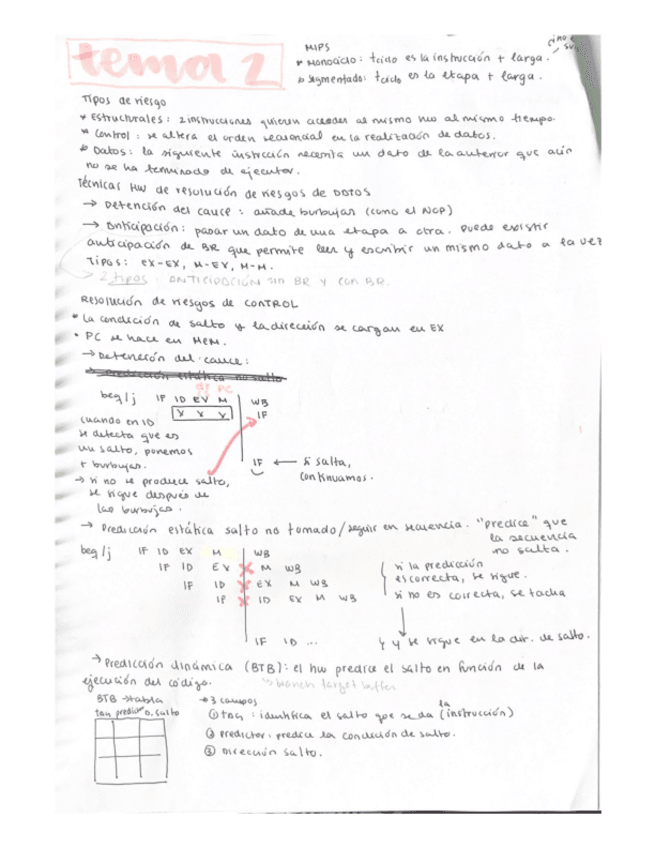 tema 2
MIPS
* Monociclo: tciclo es la instrucción + larga.
* Segmentado: tciclo es la etapa + larga.
Tipos de riesgo
* Estructurales: 2 instrucciones quieren acceder al mismo hw al mismo tiempo.
* Control: se altera el orden secuencial en la realización de datos.
* Datos: la siguiente instrucción necesita un dato de la anterior que aún
no se ha terminado de ejecutar.
Técnicas HW de resolución de riesgos de DATOS
→ Detención del cauce: añade burbujas (como el NOP)
→ Anticipación: pasar un dato de una etapa a otra. Puede existir
anticipación de BR que permite leer y escribir un mismo dato a la vez
Tipos: EX-EX, M-EX, M-M.
→ 2 tipos: ANTICIPACIÓN sin BR y con BR.
Resolución de riesgos de CONTROL
* La condición de salto y la dirección se cargan en EX
* PC se hace en MEM.
→ Detención del cauce:
→ Predicción estática no salto
PC
beq/j IF ID EX M WB
X X X IF
cuando en ID
se detecta que es
un salto, ponemos
+ burbujas.
IF ← si salta,
continuamos.
→ si no se produce salto,
se sigue después de
las burbujas.
→ Predicción estática salto no tomado/seguir en secuencia. "predice" que
la secuencia
no salta.
beq/j IF ID EX M WB
IF ID EX X M WB
IF ID X EX M WB
IF X ID EX M WB
IF ID ...
si la predicción
es correcta, se sigue.
si no es correcta, se tacha
y se sigue en la dir. de salto.
→ Predicción dinámica (BTB): el hw predice el salto en función de la
ejecución del código.
→ branch target buffer
BTB → tabla
tag predictor D. salto
→ 3 campos
① tag: identifica el salto que se da (la instrucción)
② Predictor: predice la condición de salto.
③ Dirección salto.